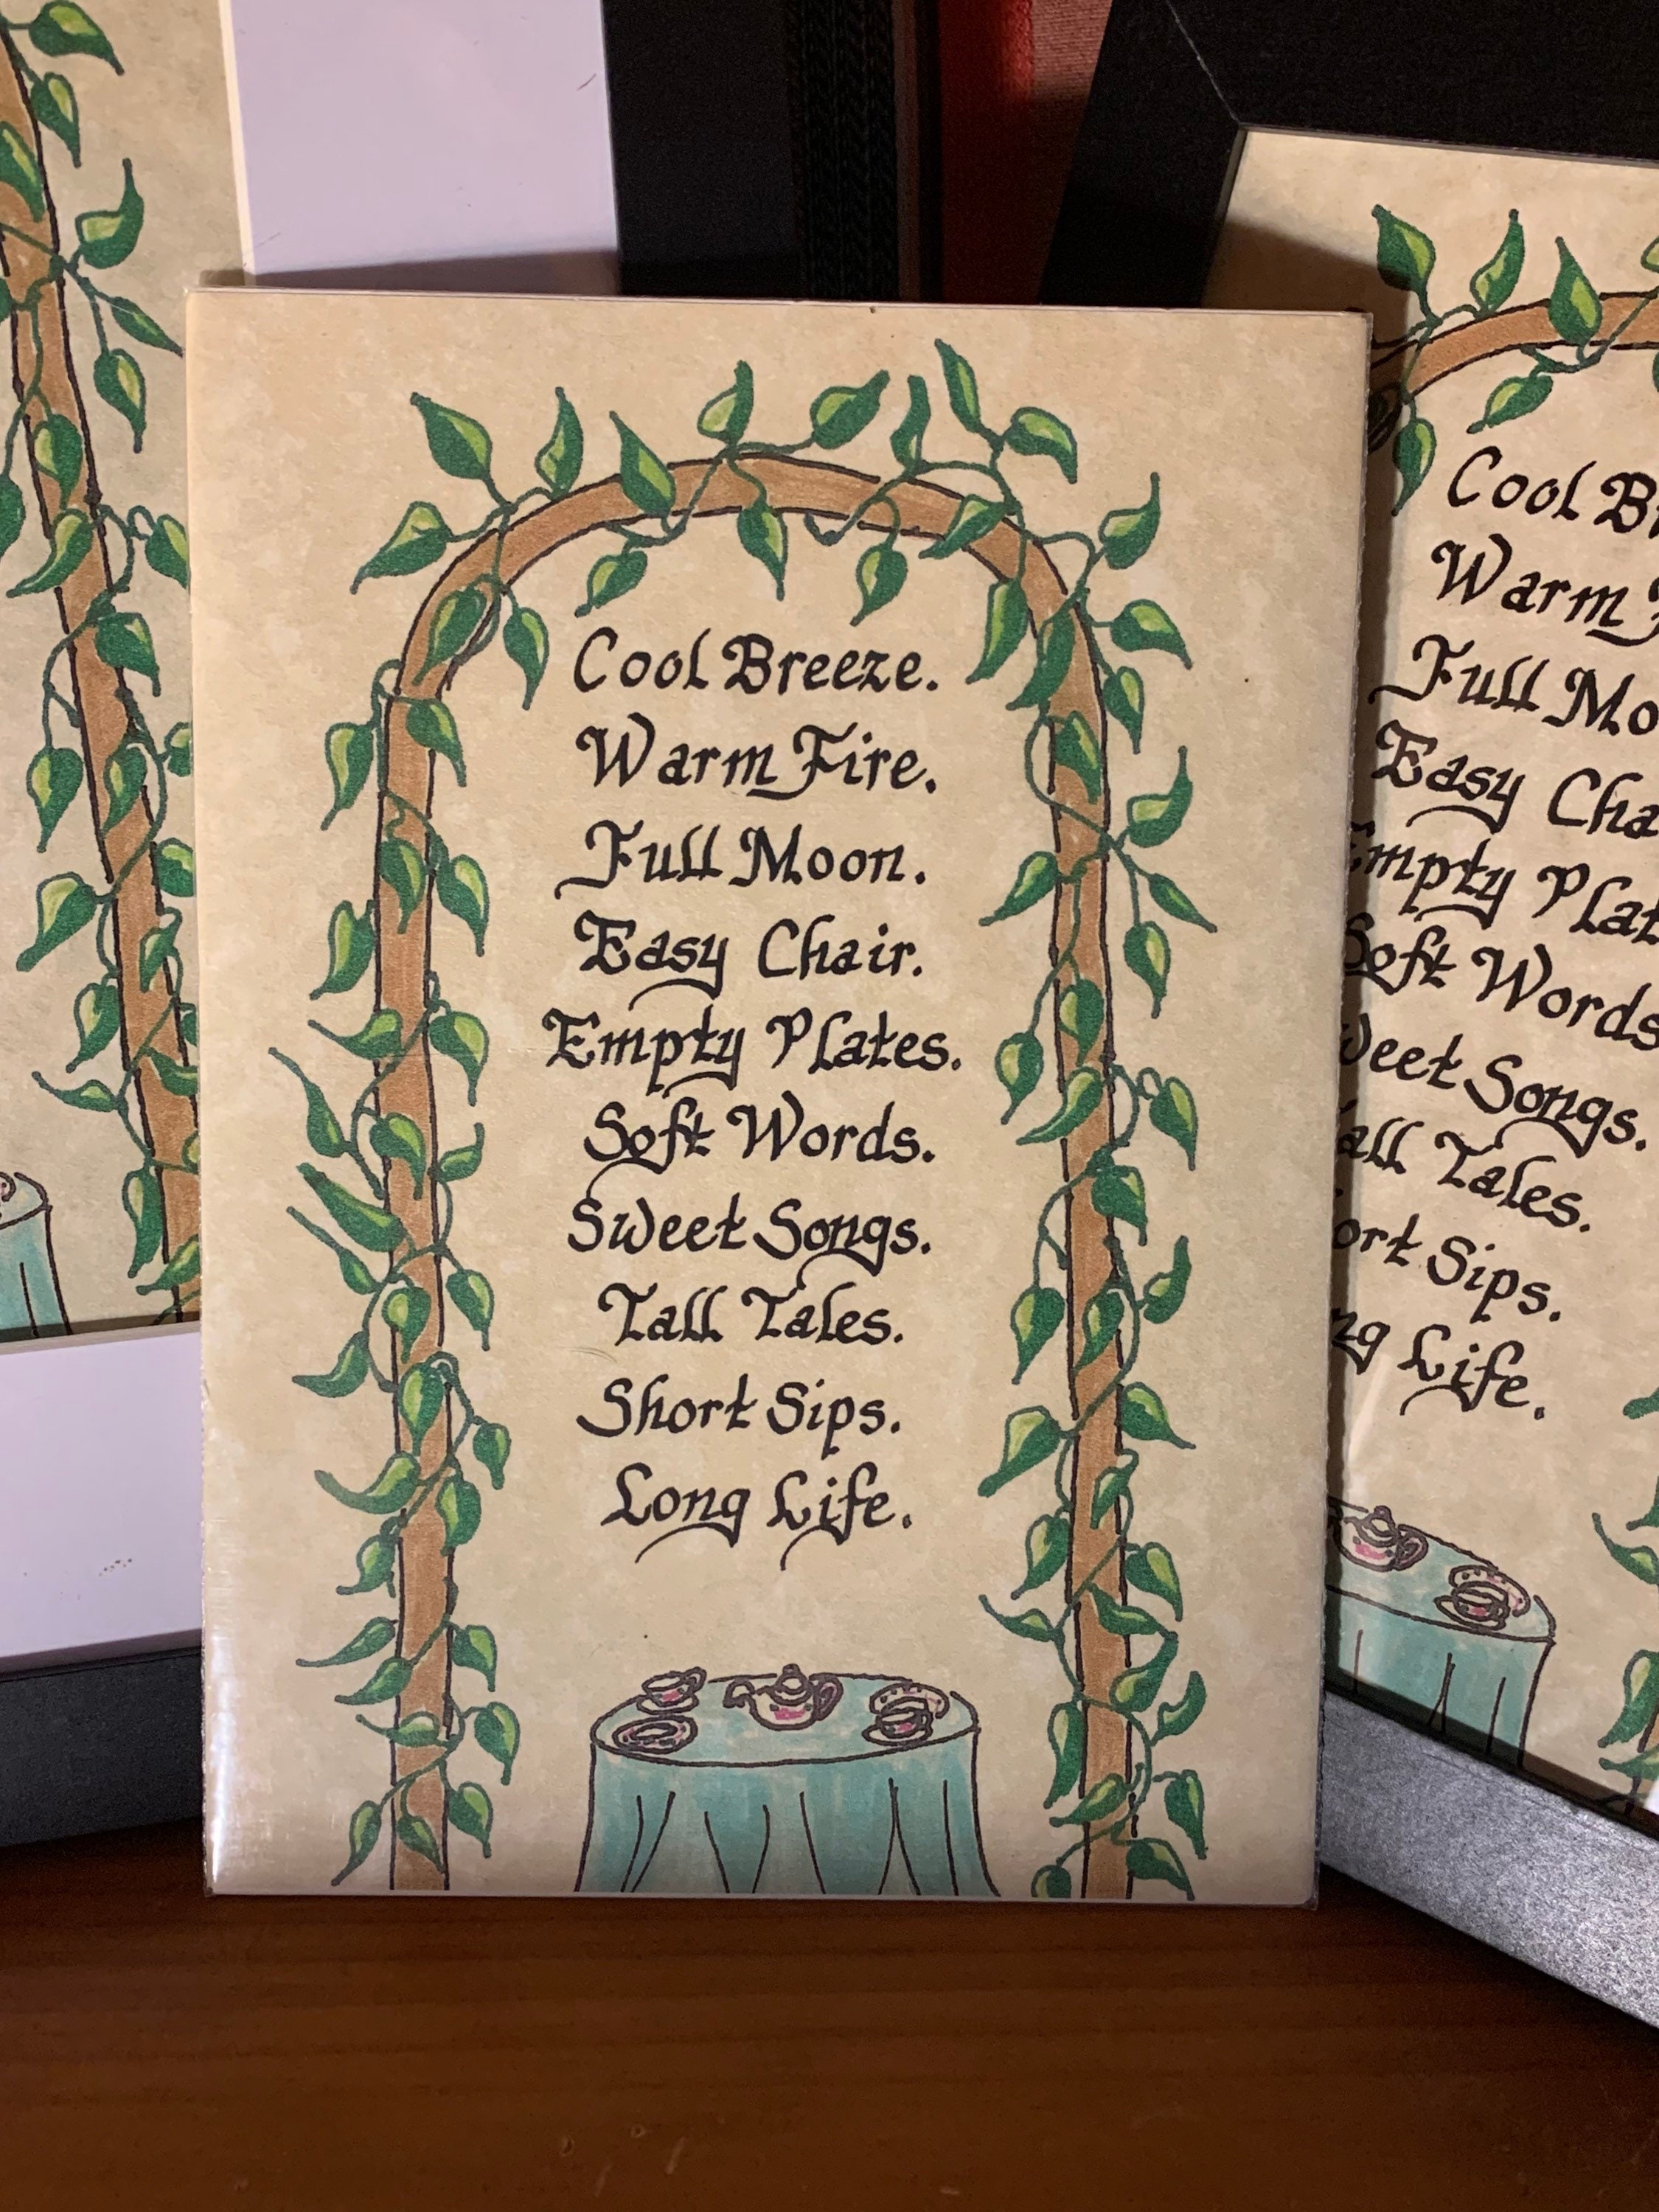 Cool Breeze.
Warm Fire.
Full Moon.
Easy Chair.
Empty Plates.
Soft Words.
Sweet Songs.
Tall Tales.
Short Sips.
Long Life.
Cool
Warm
Full
Easy
Soft Words
Songs.
Tales.
Sips.
Life.